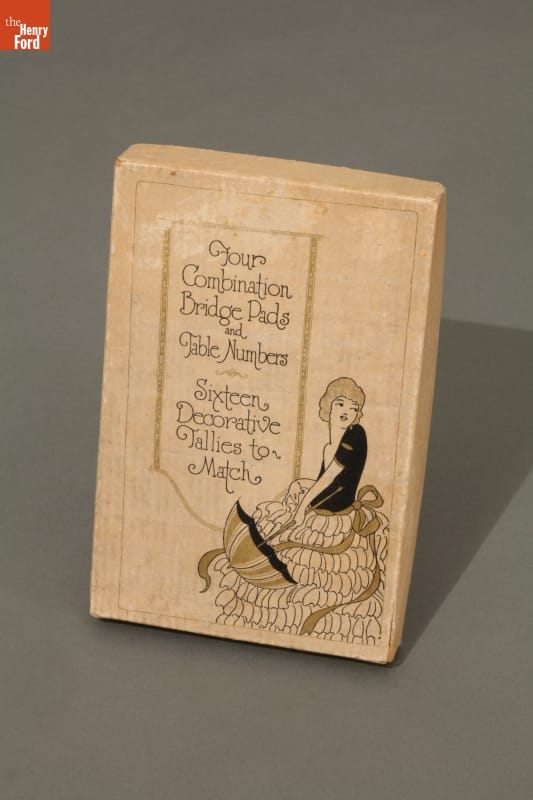 the
Henry
Ford
Four
Combination
Bridge Pads
and
Table Numbers
Sixteen
Decorative
Tallies to
Match